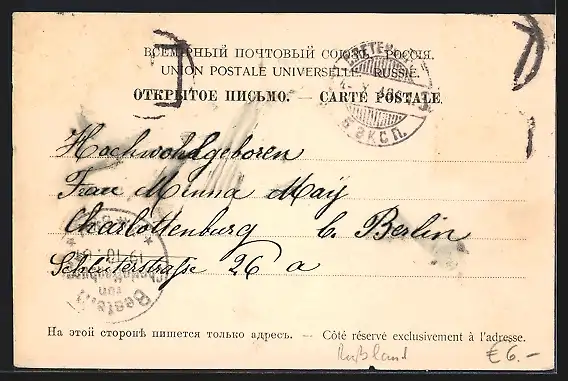 ВСЕМІРНЫЙ ПОЧТОВЫЙ СОЮЗЪ. РОССІЯ.
UNION POSTALE UNIVERSELLE. RUSSIE.
ОТКРЫТОЕ ПИСЬМО. — CARTE POSTALE.
5 ЭКСП.
Hochwohlgeboren
Frau Minna Maÿ
Charlottenburg b. Berlin
Schlüterstraße 26 a
Bestellt
На этой сторонѣ пишется только адресъ. — Côté réservé exclusivement à l'adresse.
Rußland € 6.-